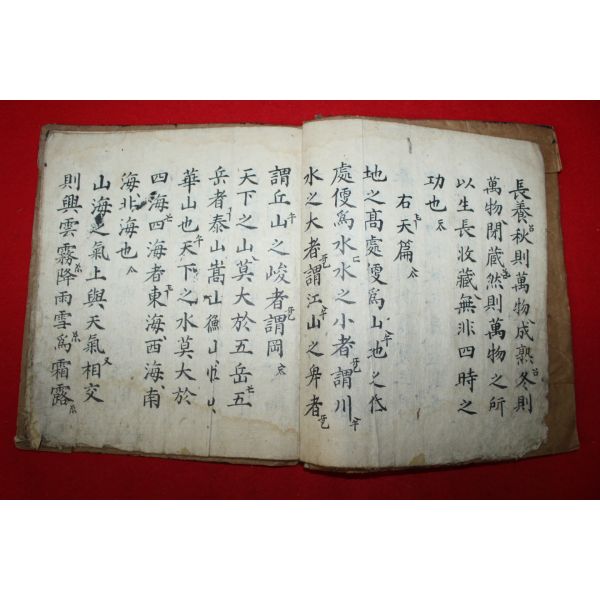 長養秋則萬物成熟冬則
萬物閉藏然則萬物之所
以生長收藏無非四時之
功也
右天篇
地之髙處便爲山地之低
處便爲水水之小者謂川
水之大者謂江山之卑者
謂丘山之峻者謂岡
天下之山莫大於五岳五
岳者泰山嵩山衡山恒山
華山也天下之水莫大於
四海四海者東海西海南
海北海也
山海之氣上與天氣相交
則興雲霧降雨雪爲霜露